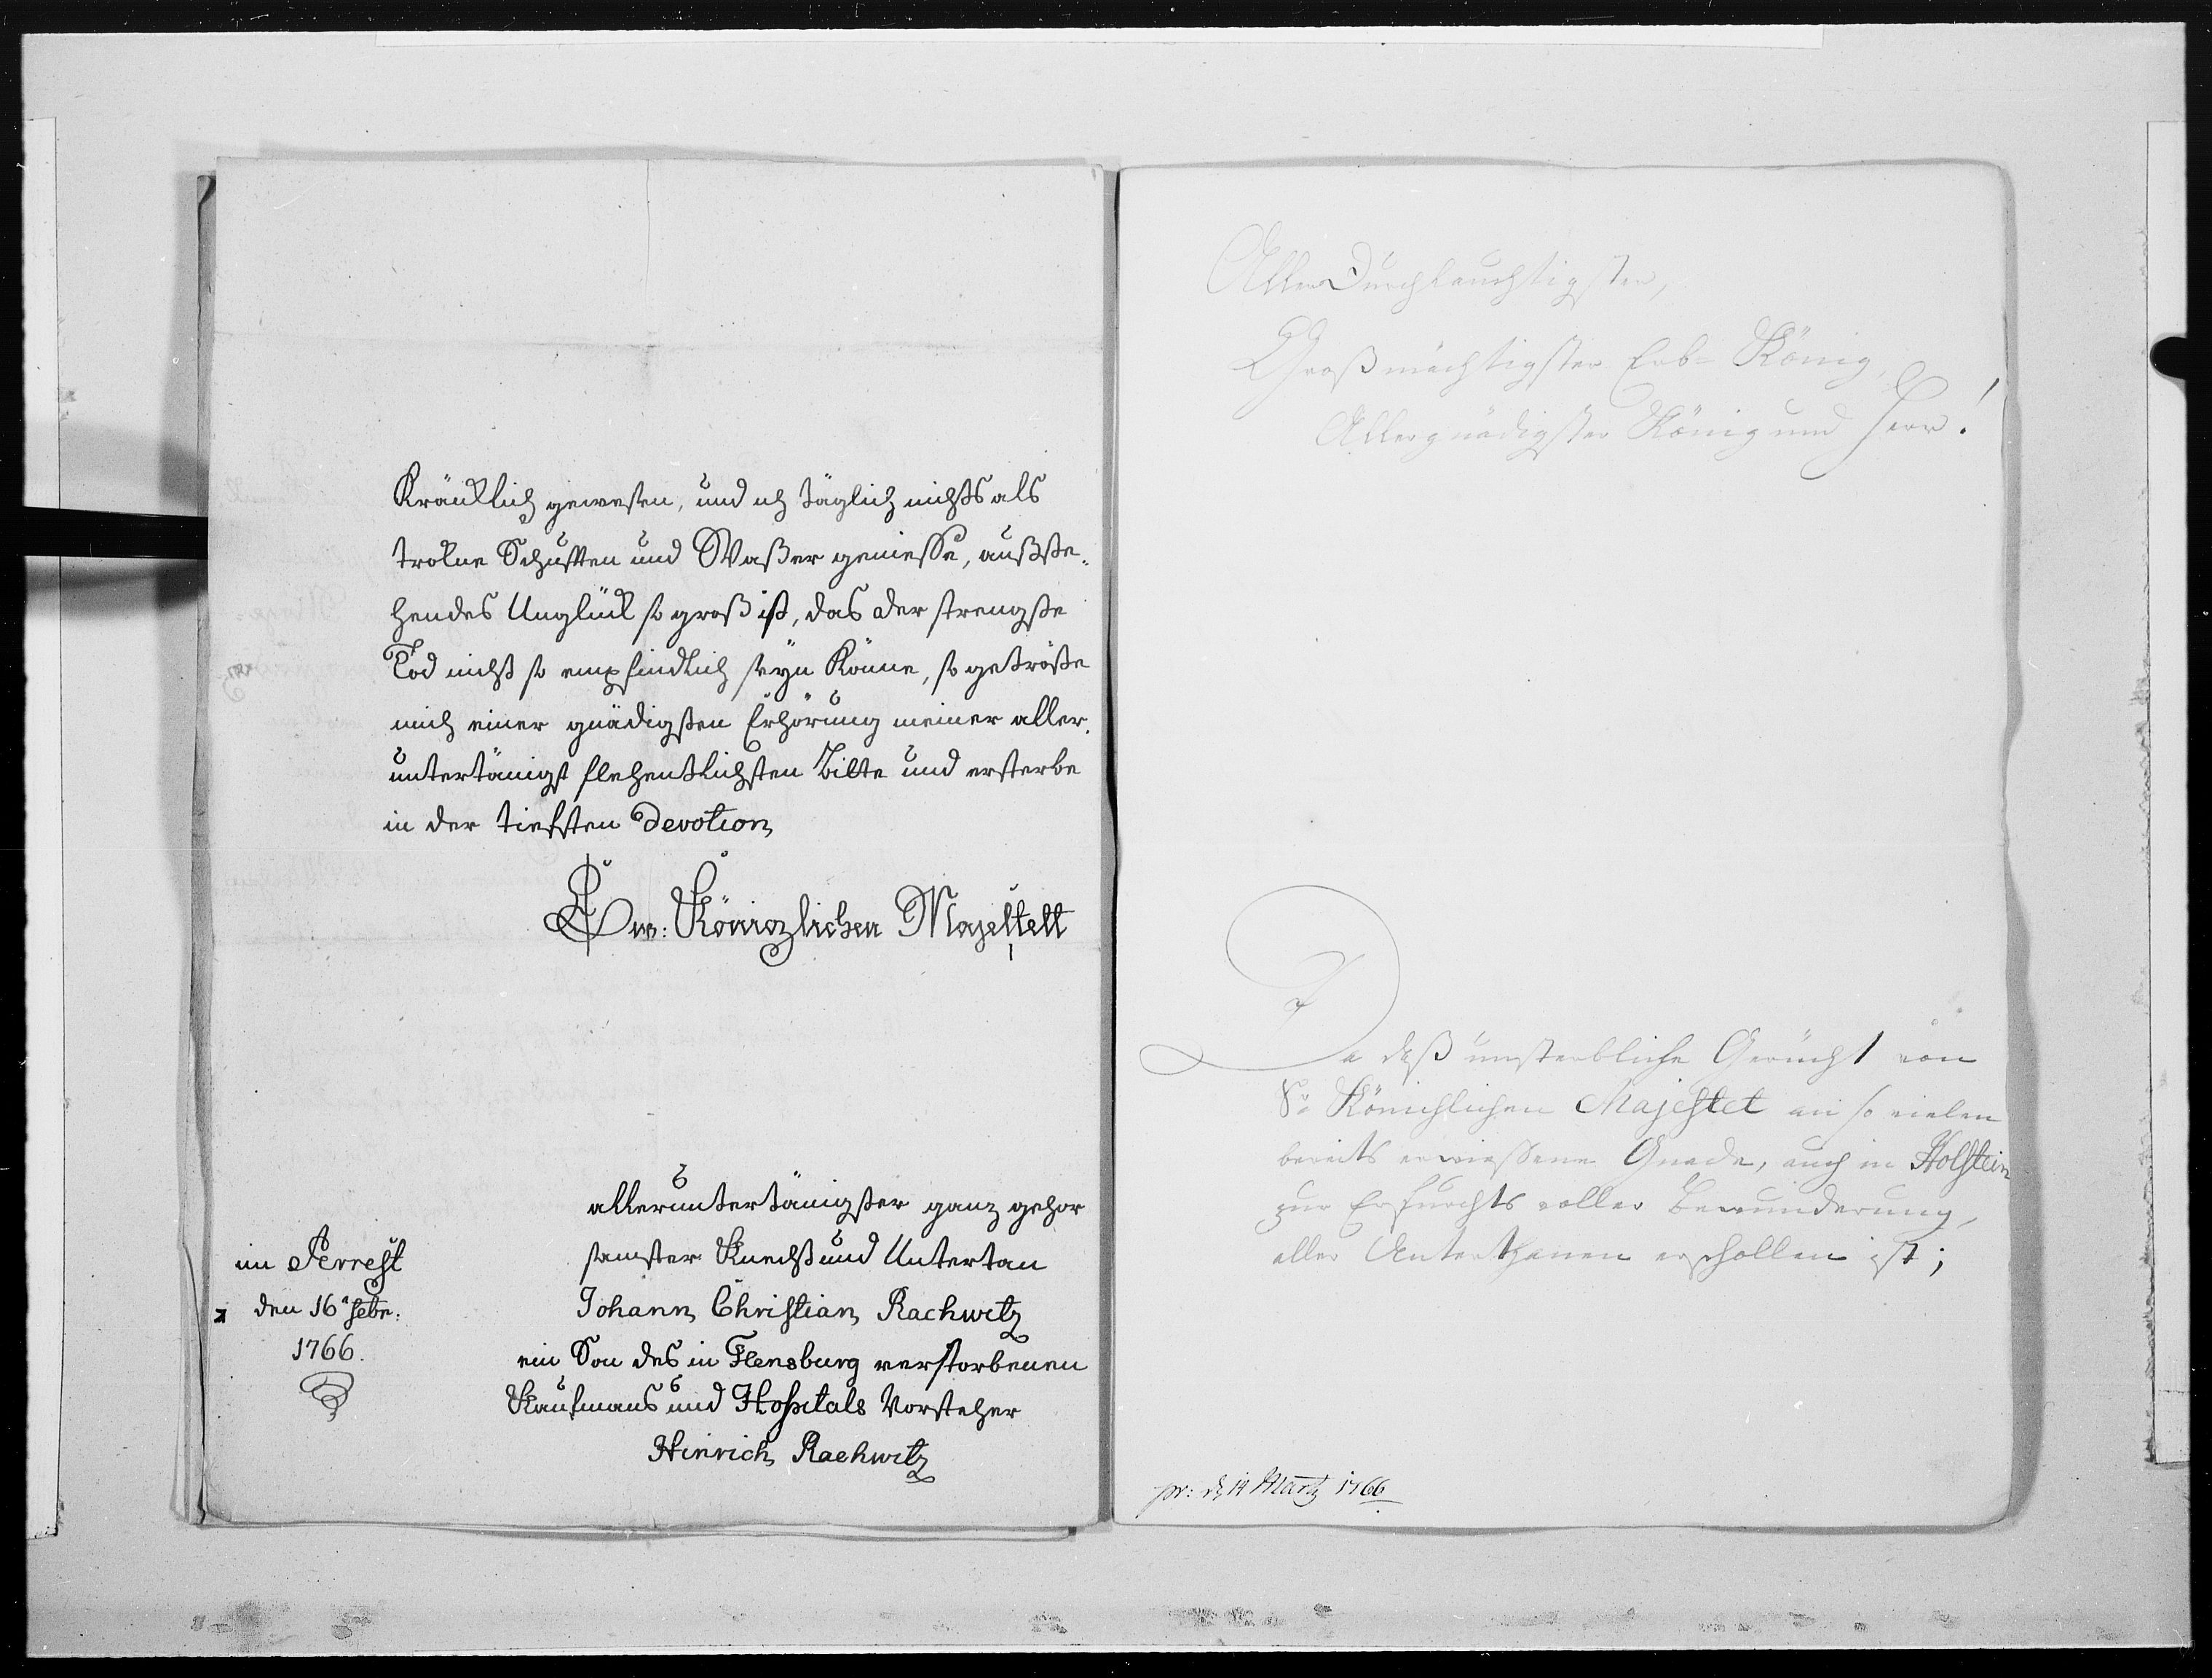 Kränklich gewesen, und ich täglich nichts als
trokne Schusten und Waßer geniesse, außste-
hendes Unglück so groß ist, das der strengste
Tod nicht so empfindlich seyn könne, so getröste
mich einer gnädigsten Erhörung meiner aller-
untertänigst flehentlichsten Bitte und ersterbe
in der tiefsten Devotion
Ew: Königlichen Majestett
alleruntertänigster ganz gehor
samster Knecht und Untertan
Johann Christian Rachwitz
ein Son des in Flensburg verstorbenen
Kaufmans und Hospitals Vorsteher
Hinrich Rachwitz
im Arrest
den 16t Febr:
1766.
Aller Durchlauchtigster,
Großmächtigster Erb-König,
Allergnädigster König und Herr!
Da daß unsterbliche Gerücht von
Sr Könichlichen Majestet an so vielen
bereits erwiessene Gnade, auch in Holstein
zur Erfurchts voller Bewunderung,
aller Unterthanen erschollen ist;
pr: d 14 Martz 1766